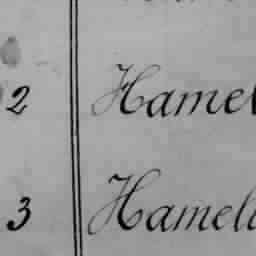 2 Hamel
3 Hamel